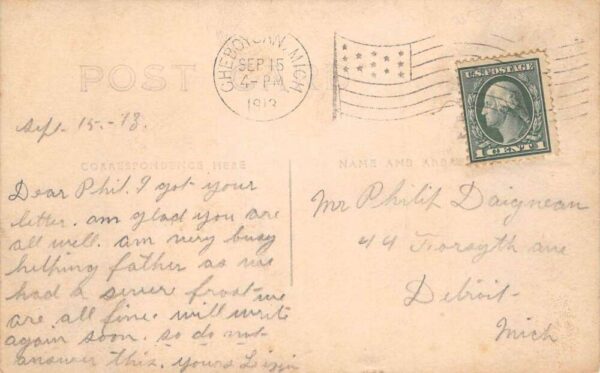 CHEBOYGAN, MICH
SEP 15
4-PM
1913
U.S. POSTAGE
1 CENT 1
POST
Sept. 15.-13.
CORRESPONDENCE HERE
NAME AND ADDRESS
Dear Phil. I got your
letter. am glad you are
all well. am very busy
helping father as we
had a sever frost we
are all fine. will write
again soon. so do not
answer this. yours Lizzie
Mr Philip Daignean
44 Forsyth ave
Detroit-
Mich